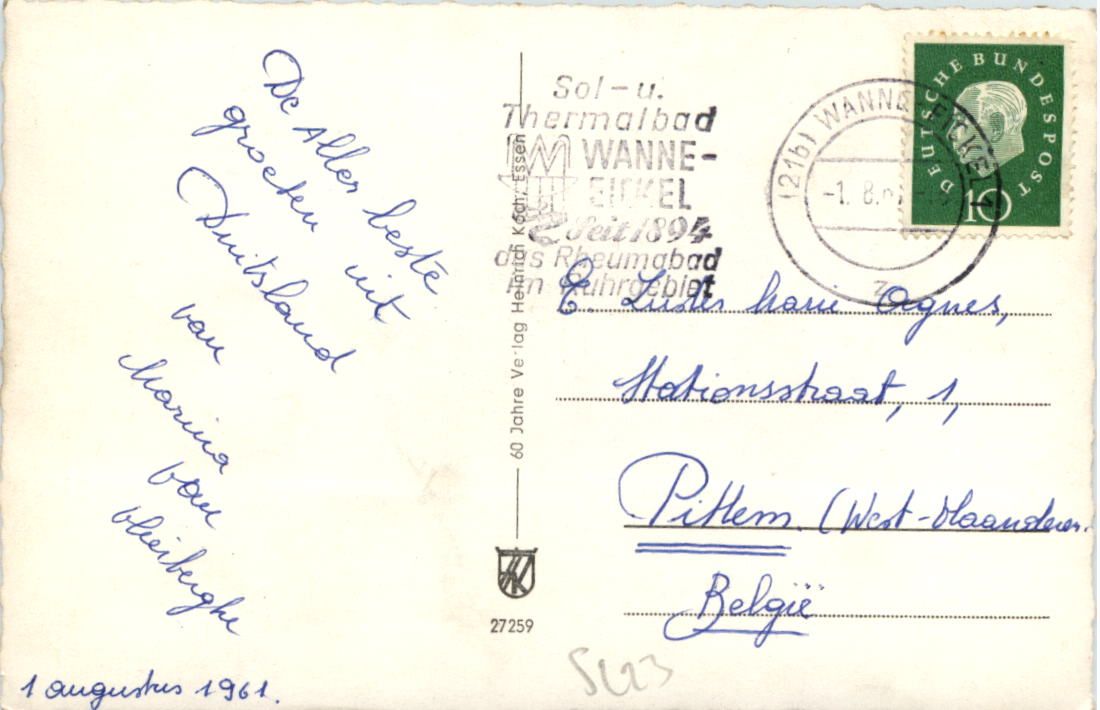 De Aller beste
groeten uit
Duitsland
van
Marina
van
1 augustus 1961.
60 Jahre Verlag Heinrich Koch, Essen
27259
Sol- u.
Thermalbad
WANNE-
EICKEL
Seit 1894
das Rheumabad
im Ruhrgebiet
(21b) WANNE-EICKEL 1
-1. 8.
z
DEUTSCHE BUNDESPOST
10
E. Zuster Marie Agnes,
Stationsstraat, 1,
Pittem (West-Vlaanderen.
België